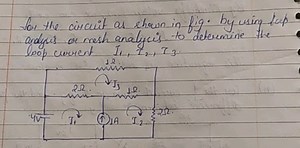 for the circuit as shown in fig. by using loop
analysis or mesh analysis to determine the
loop current I₁, I₂, I3
1Ω
I3
2Ω 1Ω
4V I₁ 1A I₂ 2Ω